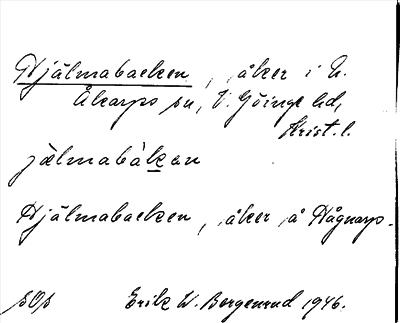 Hjälmabacken, åker i N.
Åkarps sn, V. Göinge hd,
Krist. l.
jälmabàkan
Hjälmabacken, åker å Hågnarps-
sOs Erik W. Borgenrud 1946.